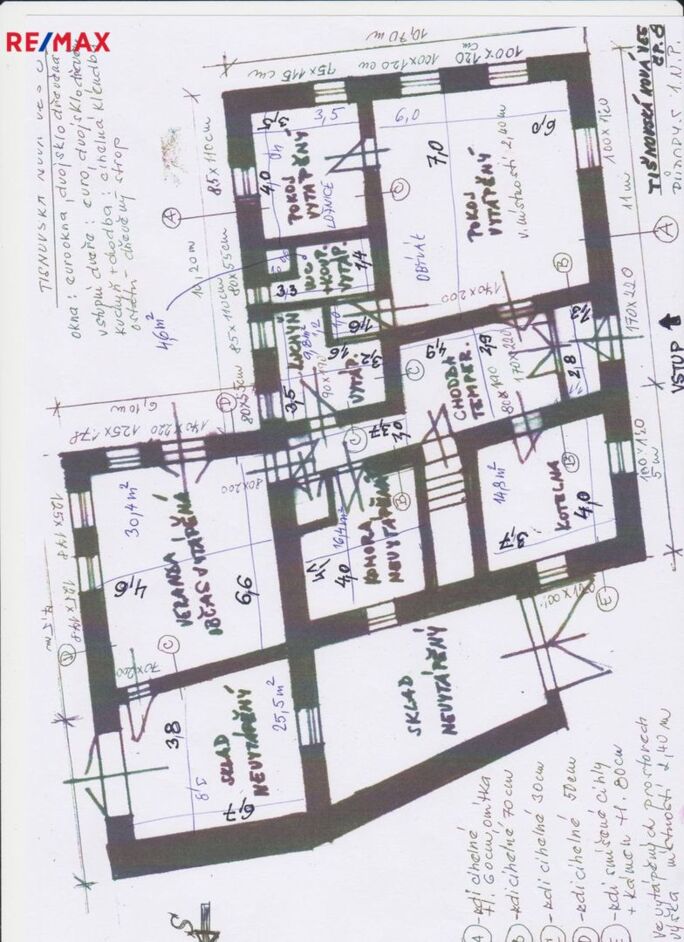 RE/MAX
TIŠNOVSKÁ NOVÁ VES
okna: eurookna, dvojsklo dřevěná
vstupní dveře: euro, dvojsklo dřevěné
kuchyň + chodba: cihelná klenba
ostatní - dřevěný strop
TIŠNOVSKÁ NOVÁ VES
ČP. 8
10,70 m
75 x 115 cm
100 x 120 cm
100 x 120
85 x 110 cm
10,20 m
80 x 55 cm
85 x 110 cm
80 x 55 cm
100 x 120
11 m
170 x 220
VSTUP
100 x 120
5 m
A
POKOJ
VYTÁPĚNÝ
LOŽNICE
3,5
4,0
C
POKOJ
VYTÁPĚNÝ
v. místnosti 2,40 m
OBÝVÁK
7,0
6,0
A
B
WC
+ KOUP.
VYTÁP.
1,4
3,3
4,6 m²
KUCHYŇ
VYTÁP.
3,5
3,2
1,6
90 x 190
CHODBA
TEMPER.
4,9
2,9
140 x 200
170 x 220
2,8
C
3,7
3,0
KOTELNA
B
14,8 m²
4,0
3,7
KOMORA
NEVYTÁPĚNÁ
B
4,0
6,10 m
125 x 178
140 x 220
D
80 x 200
VERANDA
OBČAS VYTÁPĚNÁ
30,4 m²
4,6
6,6
125 x 178
125 x 178
D
C
70 x 200
SKLAD
NEVYTÁPĚNÝ
25,5 m²
3,8
6,7
SKLAD
NEVYTÁPĚNÝ
E
S
A - zdi cihelné
tl. 60 cm, omítka
B - zdi cihelné 70 cm
C - zdi cihelné 30 cm
D - zdi cihelné 50 cm
E - zdi smíšené cihly
+ kámen tl. 80 cm
Ve vytápěných prostorech
výška místností 2,40 m